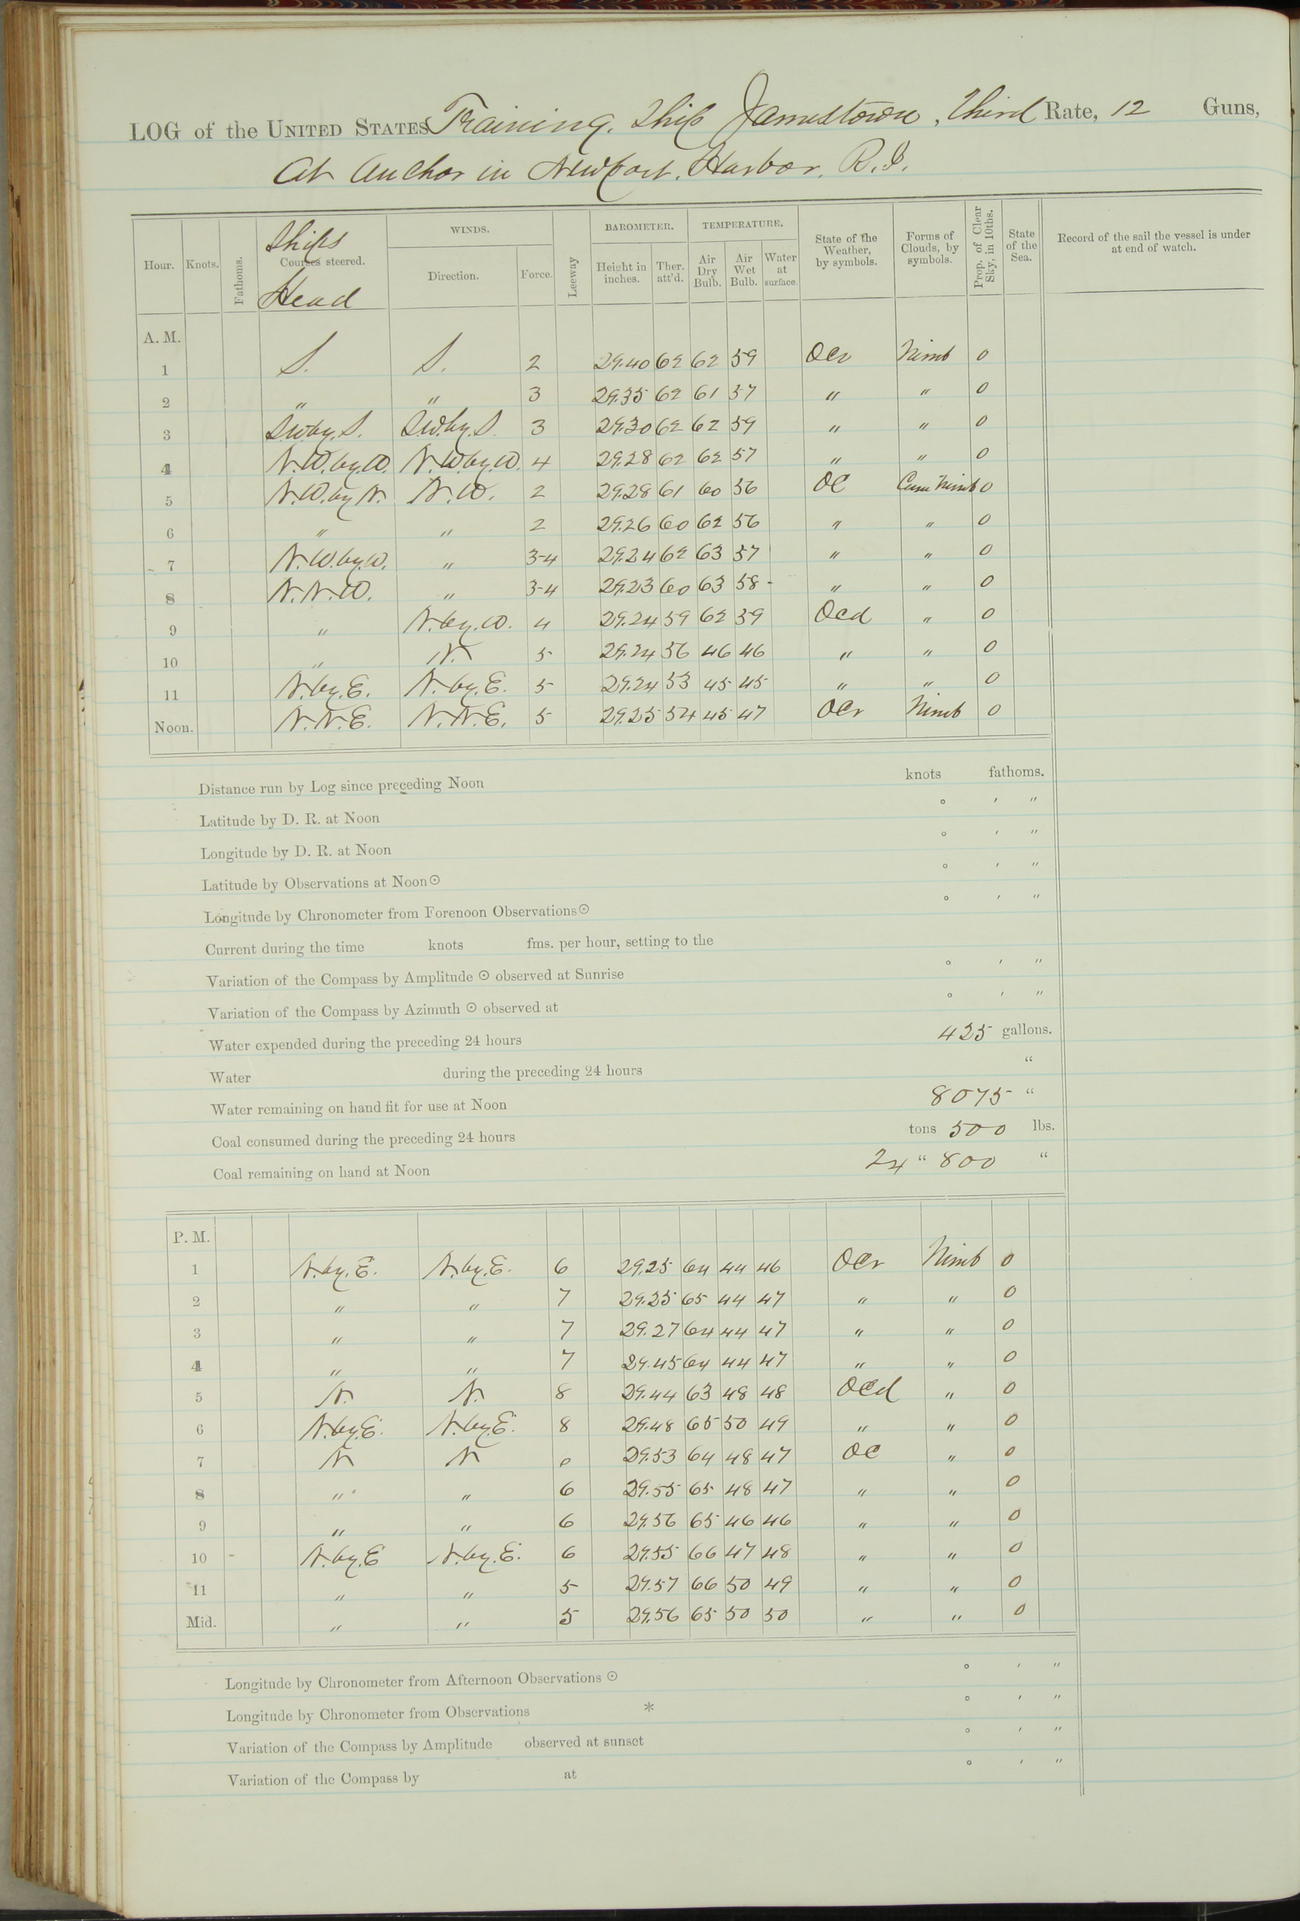 LOG of the UNITED STATES Training Ship Jamestown, Third Rate, 12 Guns,
At Anchor in Newport Harbor, R.I.
Hour. Knots. Fathoms. Ships Courses steered. Head WINDS. Direction. Force. Leeway BAROMETER. Height in inches. Ther. att'd. TEMPERATURE. Air Dry Bulb. Air Wet Bulb. Water at surface. State of the Weather, by symbols. Forms of Clouds, by symbols. Prop. of Clear Sky, in 10ths. State of the Sea. Record of the sail the vessel is under at end of watch.
A. M.
1 S. S. 2 29.40 62 62 59 Ocr Nimb 0
2 " " 3 29.35 62 61 57 " " 0
3 S.W.by.S. S.W.by.S. 3 29.30 62 62 59 " " 0
4 N.W.by.W. N.W.by.W. 4 29.28 62 62 57 " " 0
5 N.W.by N. N.W. 2 29.28 61 60 56 OC Cum Nimb 0
6 " " 2 29.26 60 62 56 " " 0
7 N.W.by.W. " 3-4 29.24 62 63 57 " " 0
8 N.N.W. " 3-4 29.23 60 63 58 " " 0
9 " N.by.W. 4 29.24 59 62 59 Ocd " 0
10 " N. 5 29.24 56 46 46 " " 0
11 N.by.E. N.by.E. 5 29.24 53 45 45 " " 0
Noon. N.N.E. N.N.E. 5 29.25 54 45 47 Ocr Nimb 0
Distance run by Log since preceding Noon knots fathoms.
Latitude by D. R. at Noon ° ' "
Longitude by D. R. at Noon ° ' "
Latitude by Observations at Noon ⊙ ° ' "
Longitude by Chronometer from Forenoon Observations ⊙ ° ' "
Current during the time knots fms. per hour, setting to the
Variation of the Compass by Amplitude ⊙ observed at Sunrise ° ' "
Variation of the Compass by Azimuth ⊙ observed at ° ' "
Water expended during the preceding 24 hours 425 gallons.
Water during the preceding 24 hours "
Water remaining on hand fit for use at Noon 8075 "
Coal consumed during the preceding 24 hours tons 500 lbs.
Coal remaining on hand at Noon 24 " 800 "
P. M.
1 N.by.E. N.by.E. 6 29.25 64 44 46 Ocr Nimb 0
2 " " 7 29.25 65 44 47 " " 0
3 " " 7 29.27 64 44 47 " " 0
4 " " 7 29.45 64 44 47 " " 0
5 N. N. 8 29.44 63 48 48 Ocd " 0
6 N.by.E. N.by.E. 8 29.48 65 50 49 " " 0
7 N N 29.53 64 48 47 OC " 0
8 " " 6 29.55 65 48 47 " " 0
9 " " 6 29.56 65 46 46 " " 0
10 N.by.E N.by.E. 6 29.55 66 47 48 " " 0
11 " " 5 29.57 66 50 49 " " 0
Mid. " " 5 29.56 65 50 50 " " 0
Longitude by Chronometer from Afternoon Observations ⊙ ° ' "
Longitude by Chronometer from Observations * ° ' "
Variation of the Compass by Amplitude observed at sunset ° ' "
Variation of the Compass by at ° ' "